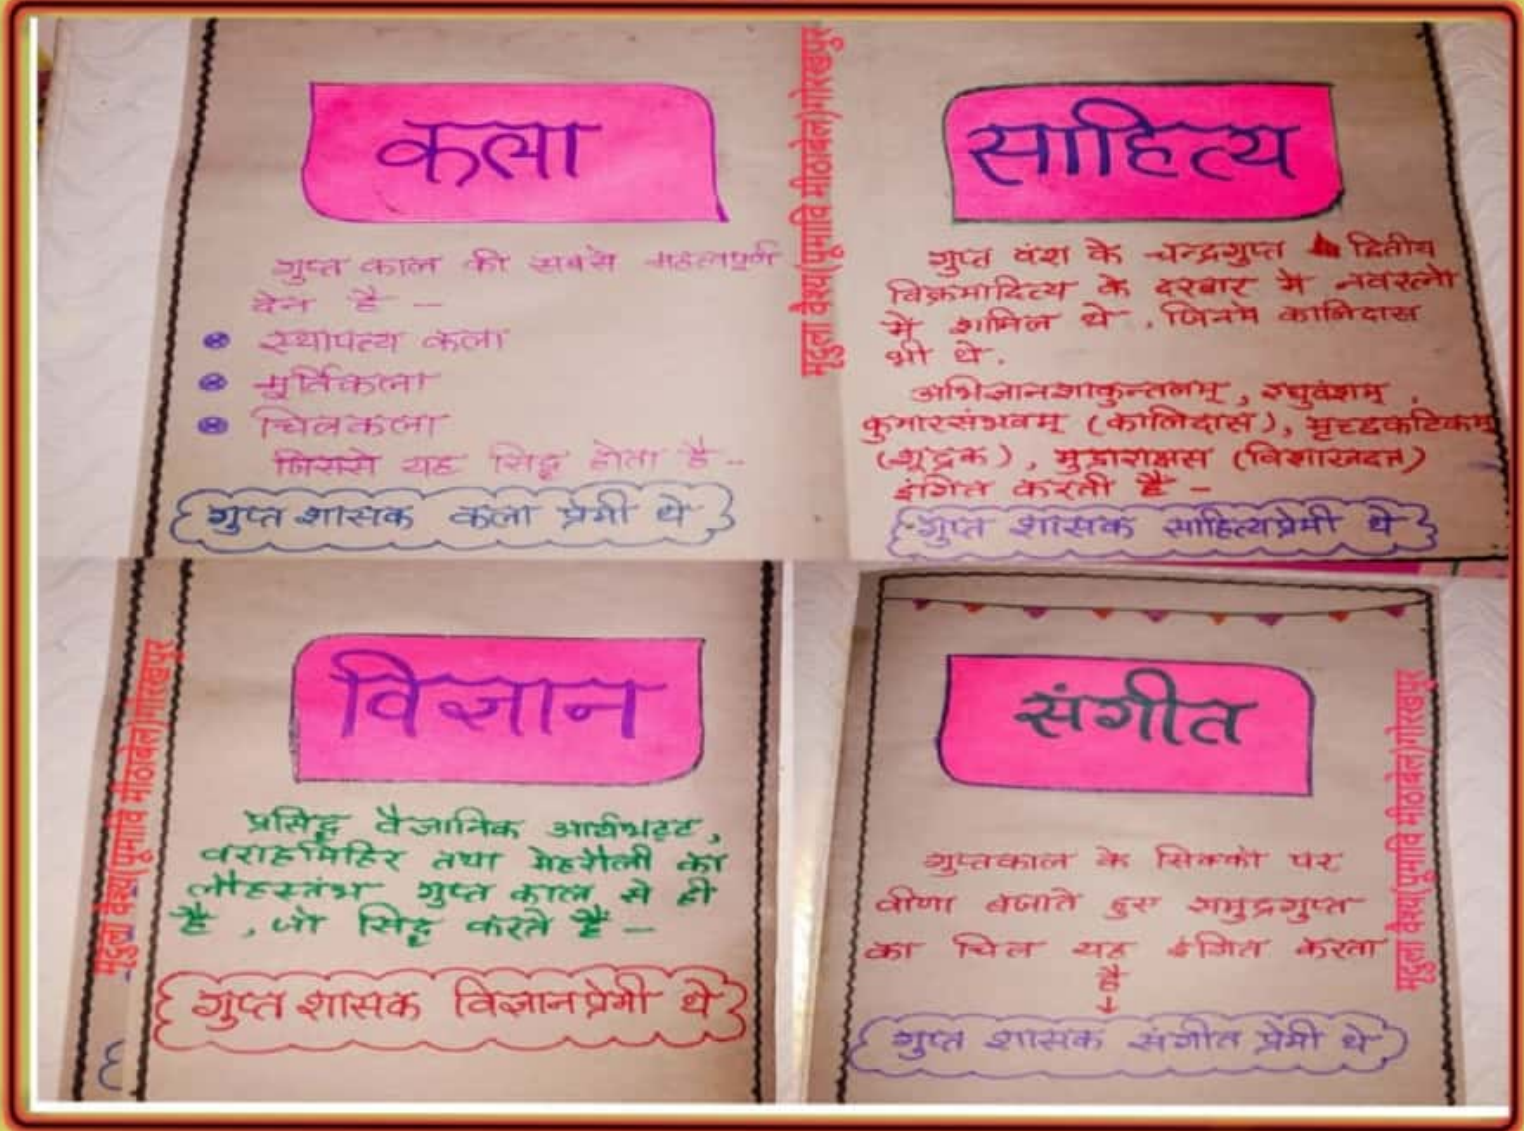 कला
गुप्त काल की सबसे महत्वपूर्ण
देन है -
स्थापत्य कला
मूर्तिकला
चित्रकला
जिससे यह सिद्ध होता है -
गुप्त शासक कला प्रेमी थे
साहित्य
गुप्त वंश के चन्द्रगुप्त द्वितीय
विक्रमादित्य के दरबार मे नवरत्नो
मे शामिल थे , जिनमे कालिदास
भी थे .
अभिज्ञानशाकुन्तलम् , रघुवंशम् ,
कुमारसंभवम् (कालिदास) , मृच्छकटिकम्
(शूद्रक) , मुद्राराक्षस (विशाखदत्त)
इंगित करती है -
गुप्त शासक साहित्य प्रेमी थे
मृदुला वैश्य(पूमावि मीठाबेल)गोरखपुर
विज्ञान
प्रसिद्ध वैज्ञानिक आर्यभट्ट ,
वराहमिहिर तथा मेहरौली का
लौहस्तंभ गुप्त काल से ही
है , जो सिद्ध करते है -
गुप्त शासक विज्ञान प्रेमी थे
मृदुला वैश्य(पूमावि मीठाबेल)गोरखपुर
संगीत
गुप्तकाल के सिक्को पर
वीणा बजाते हुए समुद्रगुप्त
का चित्र यह इंगित करता
है
↓
गुप्त शासक संगीत प्रेमी थे
मृदुला वैश्य(पूमावि मीठाबेल)गोरखपुर